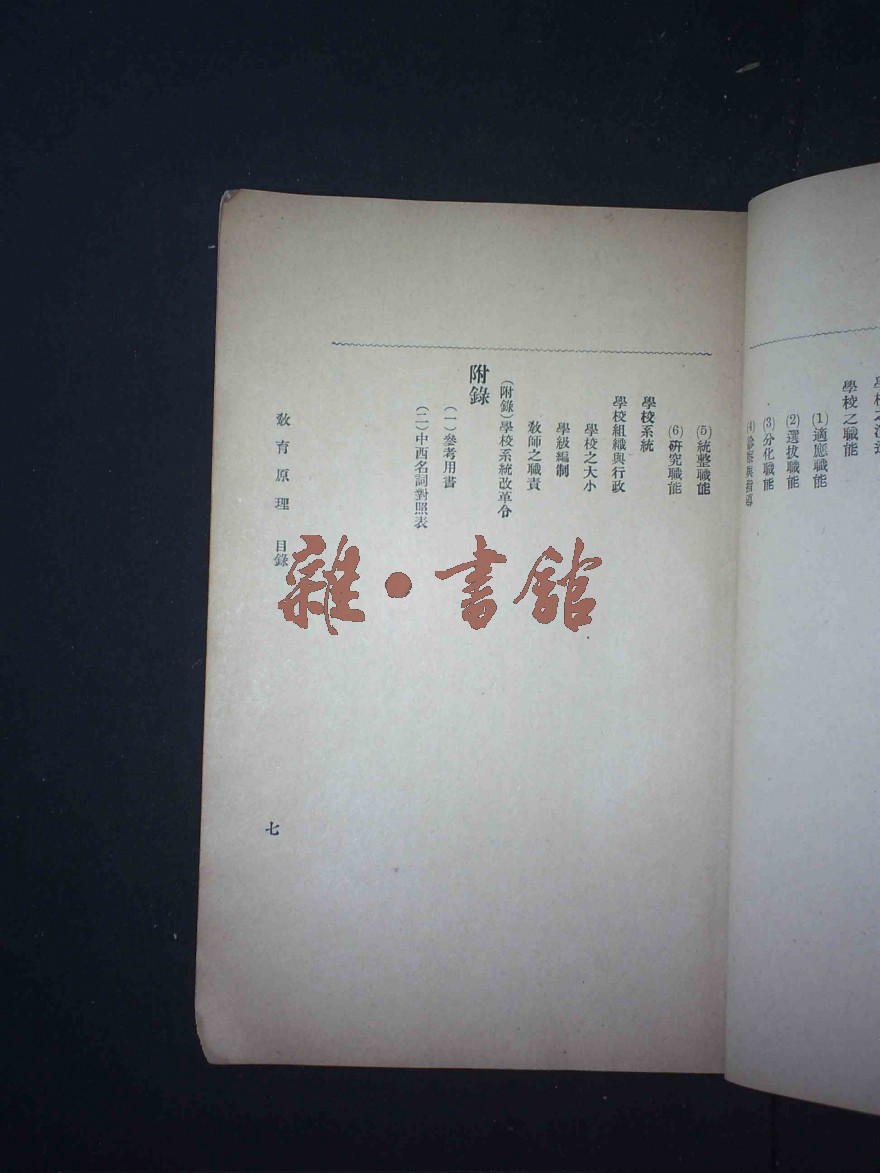 學校之職能
(1)適應職能
(2)選拔職能
(3)分化職能
(5)統整職能
(6)研究職能
學校系統
學校組織與行政
學校之大小
學級編制
教師之職責
(附錄)學校系統改革令
附錄
(一)參考用書
(二)中西名詞對照表
教育原理 目錄
七
雜·書館